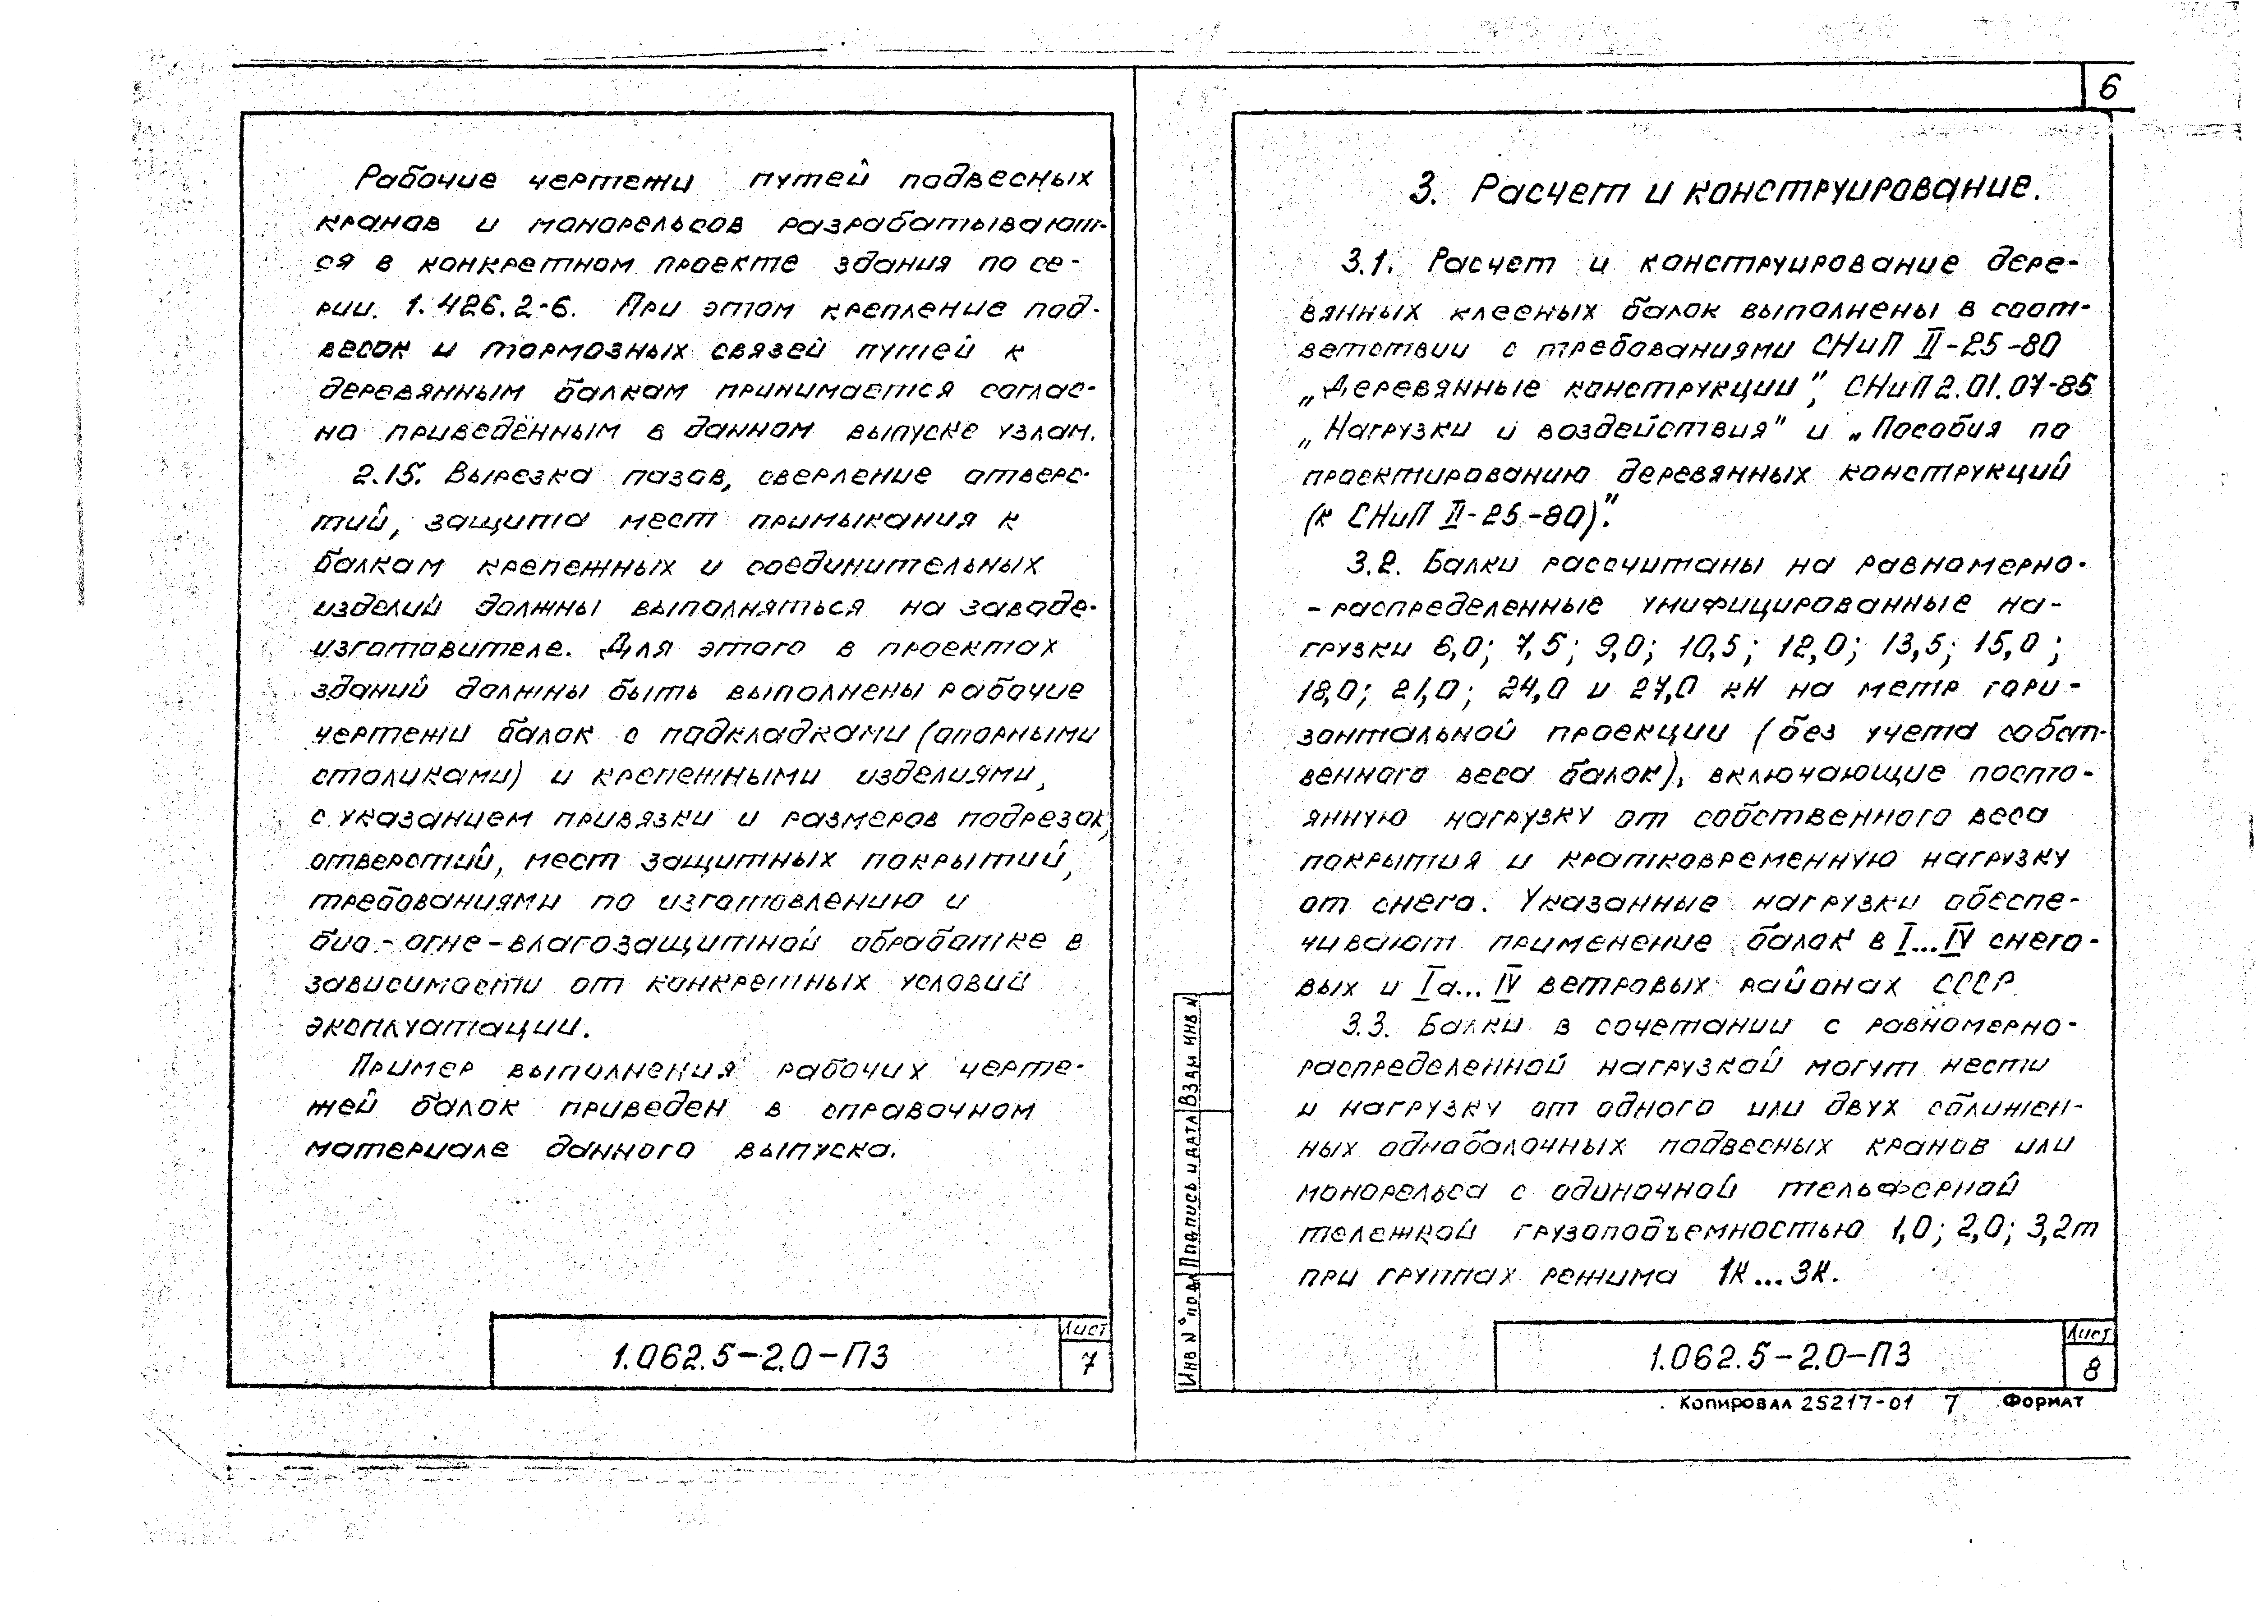 Рабочие чертежи путей подвесных
кранов и монорельсов разрабатывают-
ся в конкретном проекте здания по се-
рии 1.426.2-6. При этом крепление под-
весок и тормозных связей путей к
деревянным балкам принимается соглас-
но приведённым в данном выпуске узлам.
2.15. Вырезка пазов, сверление отверс-
тий, защита мест примыкания к
балкам крепежных и соединительных
изделий должны выполняться на заводе-
изготовителе. Для этого в проектах
зданий должны быть выполнены рабочие
чертежи балок с подкладками (опорными
столиками) и крепежными изделиями,
с указанием привязки и размеров подрезок,
отверстий, мест защитных покрытий,
требованиями по изготовлению и
био-огне-влагозащитной обработке в
зависимости от конкретных условий
эксплуатации.
Пример выполнения рабочих черте-
жей балок приведен в справочном
материале данного выпуска.
1.062.5-2.0-ПЗ
Лист
7
6
3. Расчет и конструирование.
3.1. Расчет и конструирование дере-
вянных клееных балок выполнены в соот-
ветствии с требованиями СНиП II-25-80
„Деревянные конструкции", СНиП 2.01.07-85
„Нагрузки и воздействия" и „Пособия по
проектированию деревянных конструкций
(к СНиП II-25-80)".
3.2. Балки рассчитаны на равномерно-
-распределенные унифицированные на-
грузки 6,0; 7,5; 9,0; 10,5; 12,0; 13,5; 15,0;
18,0; 21,0; 24,0 и 27,0 кН на метр гори-
зонтальной проекции (без учета собст-
венного веса балок), включающие посто-
янную нагрузку от собственного веса
покрытия и кратковременную нагрузку
от снега. Указанные нагрузки обеспе-
чивают применение балок в I...IV снего-
вых и Iа...IV ветровых районах СССР.
3.3. Балки в сочетании с равномерно-
распределенной нагрузкой могут нести
и нагрузку от одного или двух сближен-
ных однобалочных подвесных кранов или
монорельса с одиночной тельферной
тележкой грузоподъемностью 1,0; 2,0; 3,2т
при группах режима 1К...3К.
Взам инв N
Подпись и дата
Инв N° подл
1.062.5-2.0-ПЗ
Лист
8
Копировал 25217-01 7 Формат